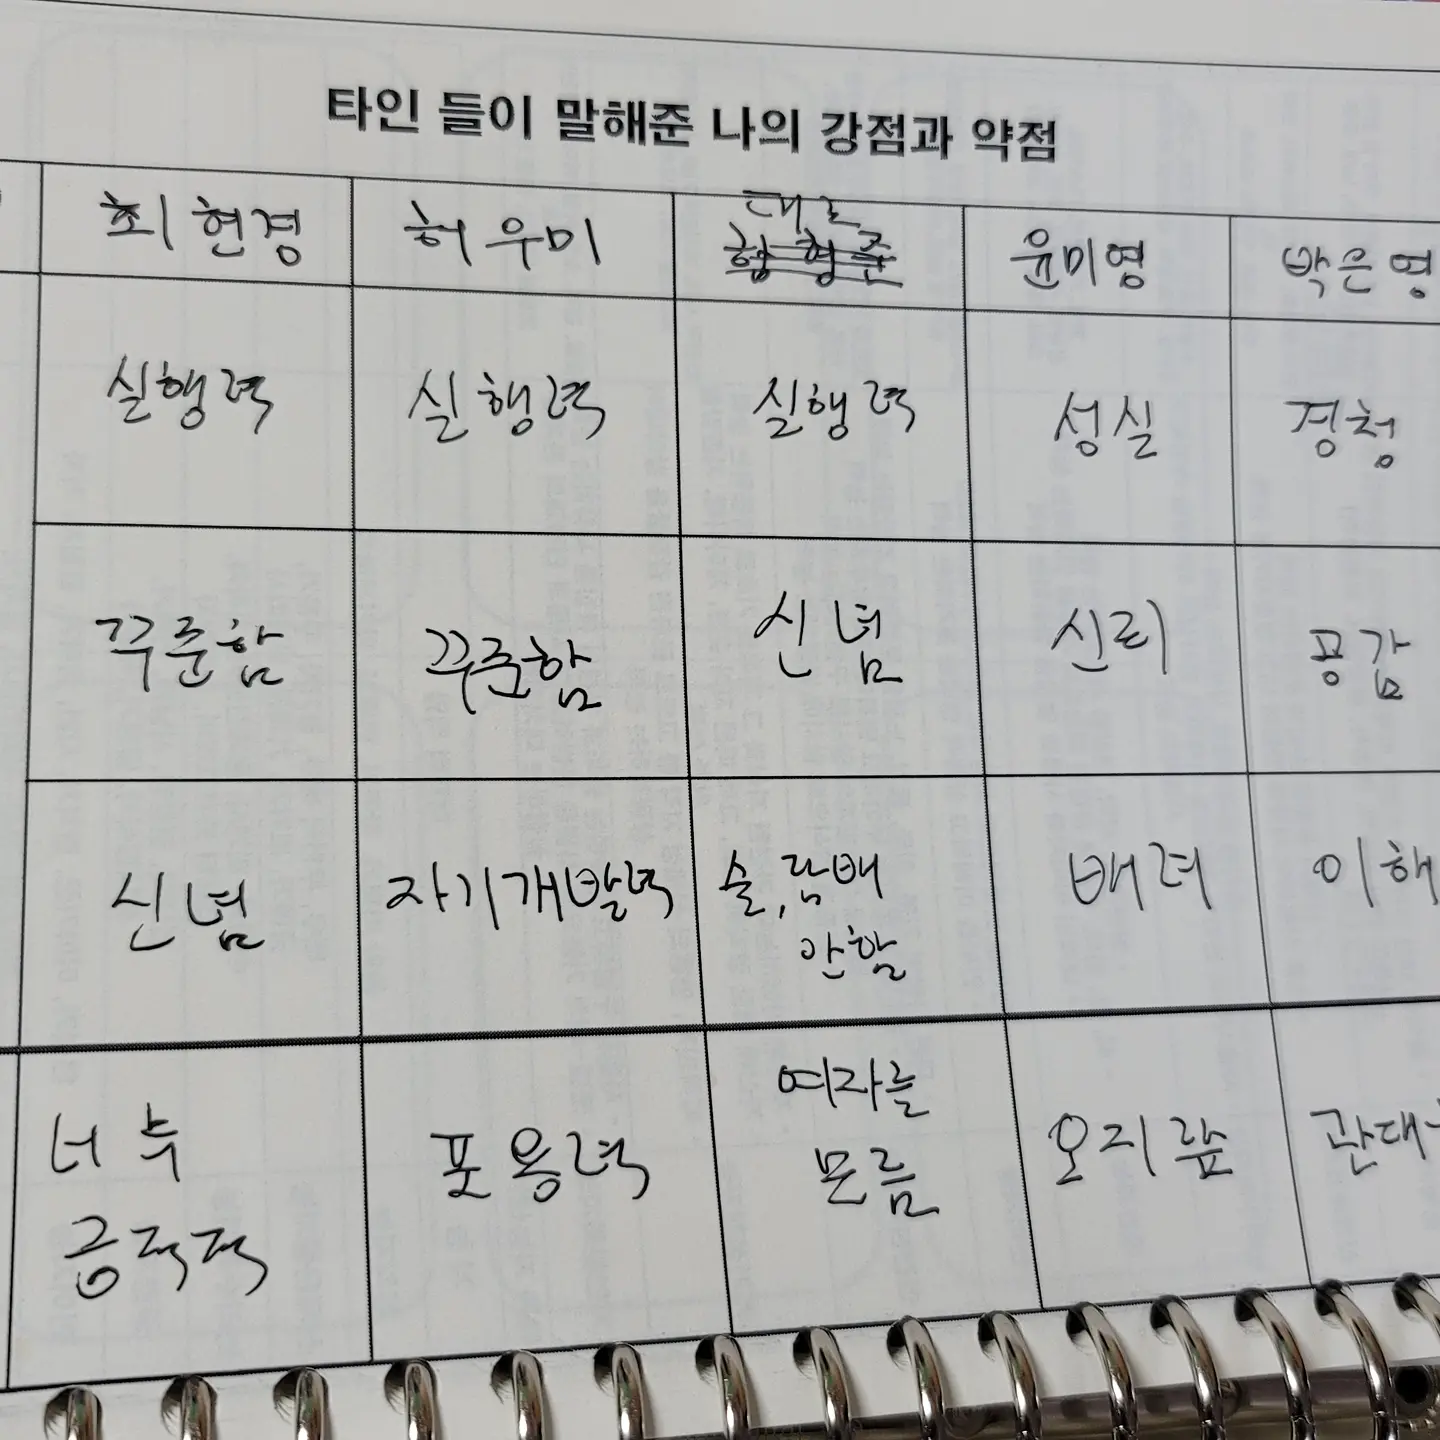 타인 들이 말해준 나의 강점과 약점
최현경 허우미 대로 윤미영 박은영
실행력 실행력 실행력 성실 경청
꾸준함 꾸준함 신념 신뢰 공감
신념 자기개발력 술, 담배 배려 이해
안함
너무 포용력 여자를 오지랖 관대
긍정적 모름